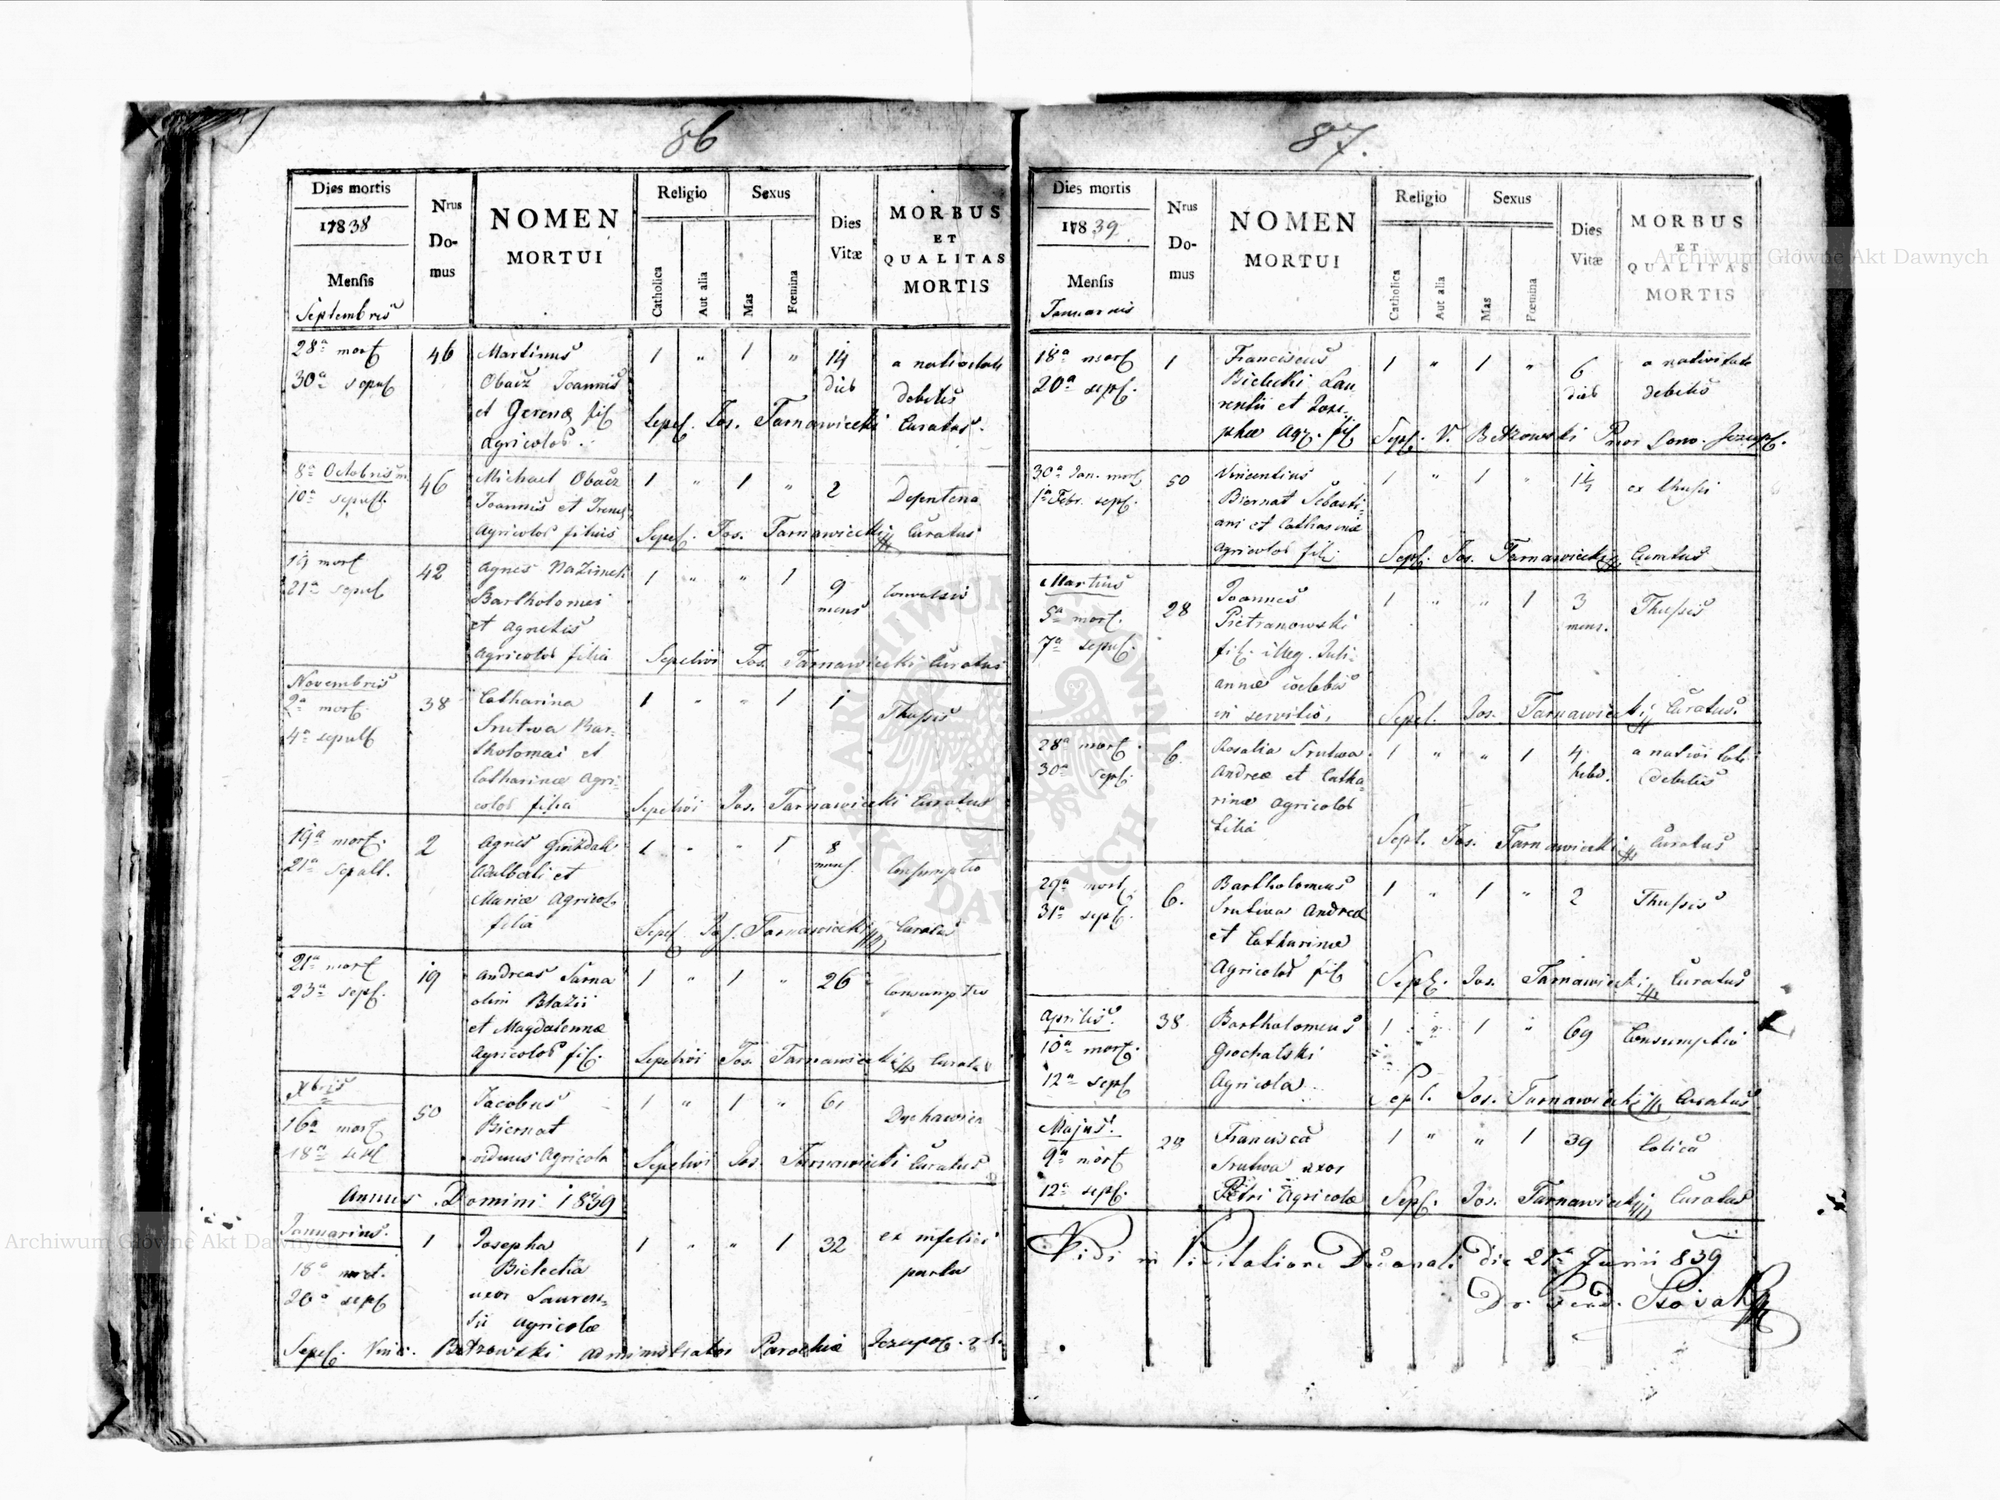 86
Dies mortis
1838
Mensis
Septembris
Nrus
Do-
mus
NOMEN
MORTUI
Religio
Catholica
Aut alia
Sexus
Mas
Fœmina
Dies
Vitæ
MORBUS
ET
QUALITAS
MORTIS
28a mort
30a sepul
46
Martinus
Obacz Joannis
et Gerenæ fil
Agricolos.
1 " 1 "
14
dieb
a nativitate
debilis
Sepel. Jos. Tarnawiecki Curatus.
8a Octobris m
10a sepult.
46
Michael Obacz
Joannis et Irenæ
Agricolos filius
1 " 1 " 2
Sepel. Jos. Tarnawiecki Curatus
19 mort
21a sepul
42
Agnes
Bartholomei
et Agnetis
Agricolos filia
1 " " 1
9
mens
Convulsis
Sepelivi Jos. Tarnawiecki Curatus
Novembris
2a mort.
4a sepult
38
Catharina
Srutwa Bar-
tholomæi et
Catharinæ Agri-
colos filia
1 " " 1 1
Thussis
Sepelivi Jos. Tarnawiecki Curatus
19a mort.
21a sepult.
2
Agnes
Adalberti et
Mariæ Agricol.
filia
1 " " 1
8
mens.
Consumptio
Sepel. Jos. Tarnawiecki Curatus
21a mort
23a sepl.
19
Andreas Sarna
olim Blazii
et Magdalennæ
Agricolos fil.
1 " 1 " 26
Consumptio
Sepelivi Jos. Tarnawiecki Curatus
Xbris
16a mort
18a sepl
50
Jacobus
Biernat
viduus Agricola
1 " 1 " 61
Dychawica
Sepelivi Jos. Tarnawiecki Curatus
Annus Domini 1839
Januarius.
18a mort.
20a sepl
1
Josepha
Bielecka
uxor Lauren-
tii Agricolæ
1 " " 1 32
ex infelici
partu
Sepel. Vinc. Betzowski Administrator Parochiæ Jezupol.
87.
Dies mortis
1839.
Mensis
Januarius
Nrus
Do-
mus
NOMEN
MORTUI
Religio
Catholica
Aut alia
Sexus
Mas
Fœmina
Dies
Vitæ
MORBUS
ET
QUALITAS
MORTIS
18a mort
20a sepl.
1
Franciscus
Bielecki Lau-
rentii et Jose-
phæ Agr. fil
1 " 1 "
6
dieb
a nativitate
debilis
Sepl. V. Betzowski Prior Conv. Jezupol.
30a Jan. mort
1a Febr. sepl.
50
Vincentius
Biernat Sebasti-
ani et Catharinæ
Agricolos fil.
1 " 1 " 1½
ex thussi
Sepl. Jos. Tarnawiecki Curatus
Martius
5a mort.
7a sepul.
28
Joannes
Pietranowski
fil. illeg. Juli-
annæ cælebis
in servitio.
1 " " 1
3
mens.
Thussis
Sepel. Jos. Tarnawiecki Curatus.
28a mort.
30a sepl.
6.
Rosalia Srutwa
Andreæ et Catha-
rinæ Agricolos
filia
1 " " 1
4
hebd.
a nativitate
debilis
Sepl. Jos. Tarnawiecki Curatus
29a mort.
31a sepl.
6.
Bartholomeus
Srutwa Andreæ
et Catharinæ
Agricolos fil
1 " 1 " 2
Thussis
Sepl. Jos. Tarnawiecki Curatus
Aprilis.
10a mort.
12a sepl
38
Bartholomeus
Grochalski
Agricola
1 " 1 " 69
Consumptio
Sepl. Jos. Tarnawiecki Curatus
Majus.
9a mort
12a sepl.
28
Francisca
Srutwa uxor
Petri Agricolæ
1 " " 1 39
Colica
Sepl. Jos. Tarnawiecki Curatus
Vidi in Visitatione Decanali die 21a Junii 839
Archiwum Główne Akt Dawnych
Archiwum Główne Akt Dawnych